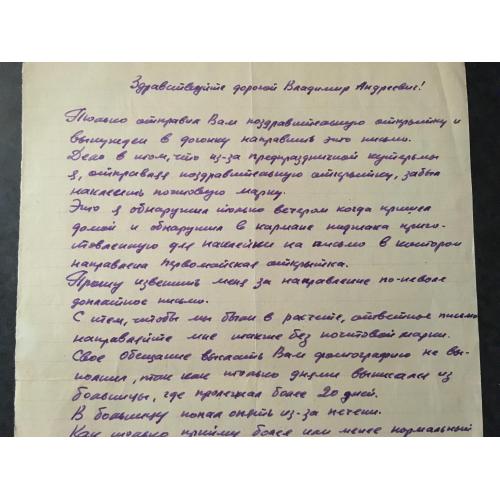 Здравствуйте дорогой Владимир Андреевич!
Только отправил Вам поздравительную открытку и
вынужден в догонку направить это письмо.
Дело в том, что из-за предпраздничной кутерьмы
я, отправляя поздравительную открытку, забыл
наклеить почтовую марку.
Это я обнаружил только вечером когда пришел
домой и обнаружил в кармане пиджака приго-
товленную для наклейки на письмо в котором
направлена первомайская открытка.
Прошу извинить меня за направление по-неволе
доплатное письмо.
С тем, чтобы мы были в расчете, ответное письмо
направляйте мне также без почтовой марки.
Свое обещание выслать Вам фотографию не вы-
полнил, так как только днями выписался из
больницы, где пролежал более 20 дней.
В больницу попал опять из-за печени.
Как только приму более или менее нормальный